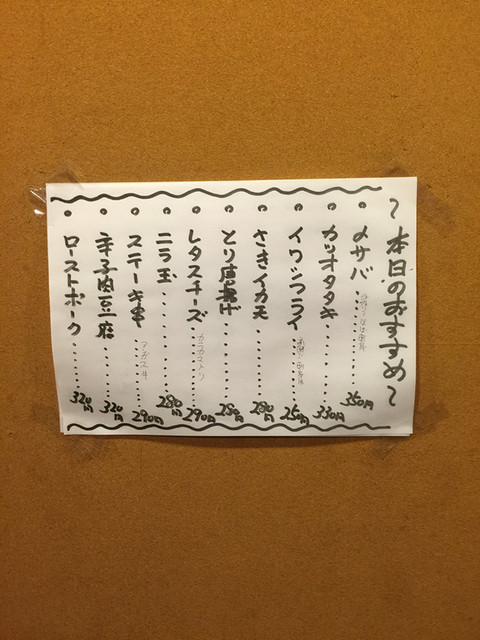 〜本日のおすすめ〜
〆サバ 350円
カツオタタキ 330円
イワシフライ 250円
さきイカ天 280円
とり唐揚げ 280円
レタスチーズ 290円
ニラ玉 280円
ステーキ串 290円
辛子肉豆腐 320円
ローストポーク 320円